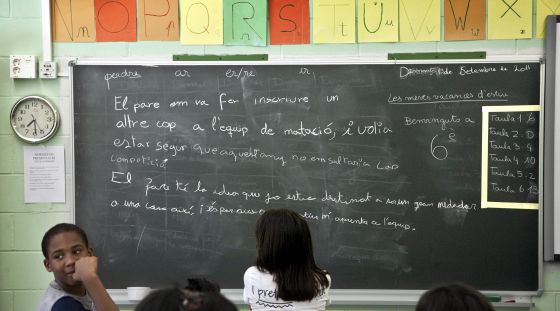 N O P Q R S T U V W X Y
perdre ar er/re ir
Dimarts 13 de Setembre de 2011
El pare em va fer inscriure un
altre cop a l'equip de natació, i volia
estar segur que aquest any no em saltaria cap
competició.
El pare té la idea que jo estic destinat a ser un gran nedador
a una cara així, i espera
augmenta a l'equip.
Les meves vacances d'estiu
Benvinguts a
6è
Taula 1 6
Taula 2 0
Taula 3 9
Taula 4 10
Taula 5 2
Taula 6 13
I pret